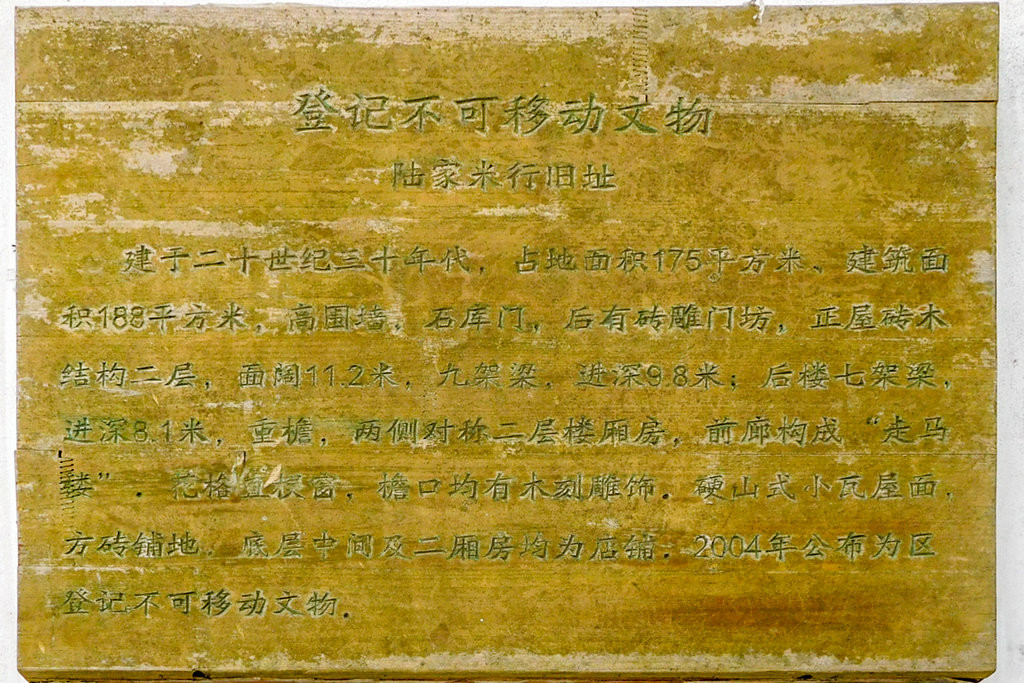 登记不可移动文物
陆家米行旧址
建于二十世纪三十年代，占地面积175平方米、建筑面
积188平方米，高围墙，石库门，后有砖雕门坊，正屋砖木
结构二层，面阔11.2米，九架梁，进深9.8米；后楼七架梁，
进深8.1米，重檐，两侧对称二层楼厢房，前廊构成“走马
楼”．花格直棂窗，檐口均有木刻雕饰．硬山式小瓦屋面，
方砖铺地，底层中间及二厢房均为店铺．2004年公布为区
登记不可移动文物．